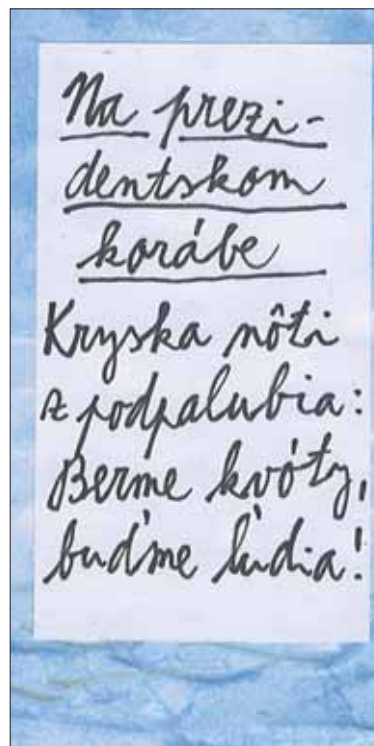 Na prezi-
dentskom
korábe
Kryska nôti
z podpalubia:
Berme kvóty,
buďme ľudia!